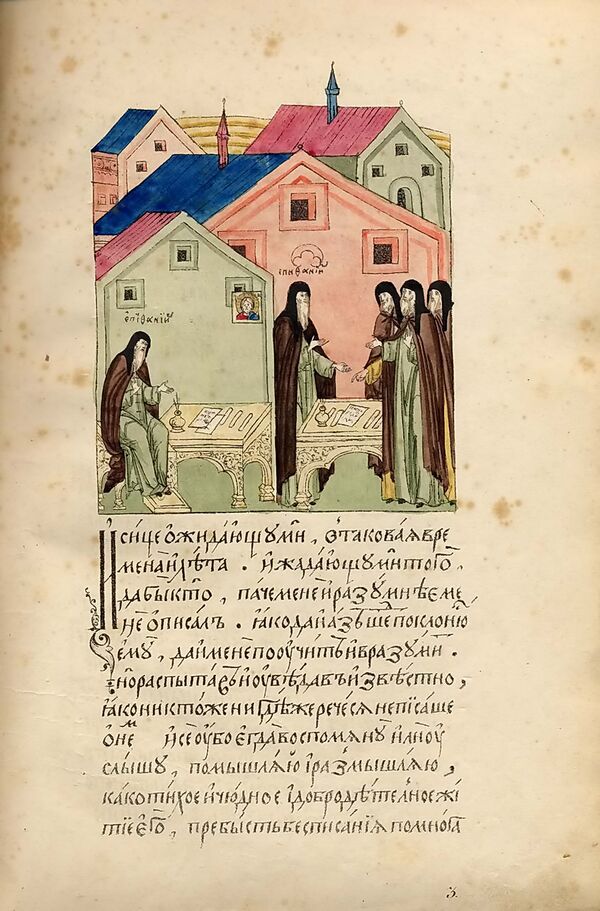 епифании
епифании
И сице ожидающу ми, в таковая вре
мена и лета. и жадающу ми того҃
да бы кто, паче мене и разумнѣе ме
не описал. яко да и аз шед поклоню҃
ему, да и мене поучить и вразуми.
но распытавъ и увѣдавъ извѣстно,
яко никтоже нигдѣже речеся не писаше
о не҃м. и се убо егда воспомяну или у
слышу, помышляю и размышляю,
како тихое и чюдное и добродѣтелное жи
тие его, пребысть бес писания по многа
3